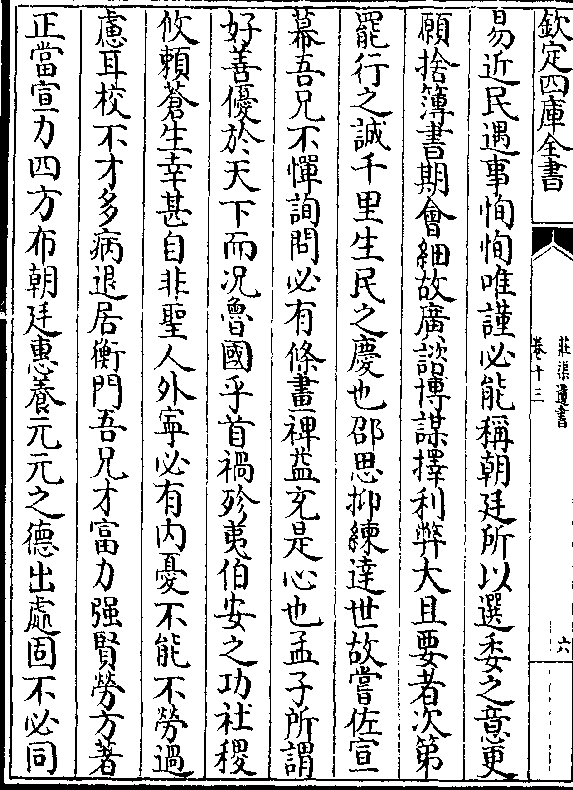 欽定四庫全書
莊渠遺書
卷十三
六
易近民遇事恂恂唯謹必能稱朝廷所以選委之意更
願捨簿書期會細故廣諮博謀擇利弊大且要者次第
罷行之誠千里生民之慶也邵思抑練達世故嘗佐宣
幕吾兄不憚詢問必有條畫裨益充是心也孟子所謂
好善優於天下而況魯國乎首禍殄夷伯安之功社稷
攸賴蒼生幸甚自非聖人外寧必有内憂不能不勞過
慮耳校不才多病退居衡門吾兄才富力强賢勞方著
正當宣力四方布朝廷惠養元元之德出處固不必同